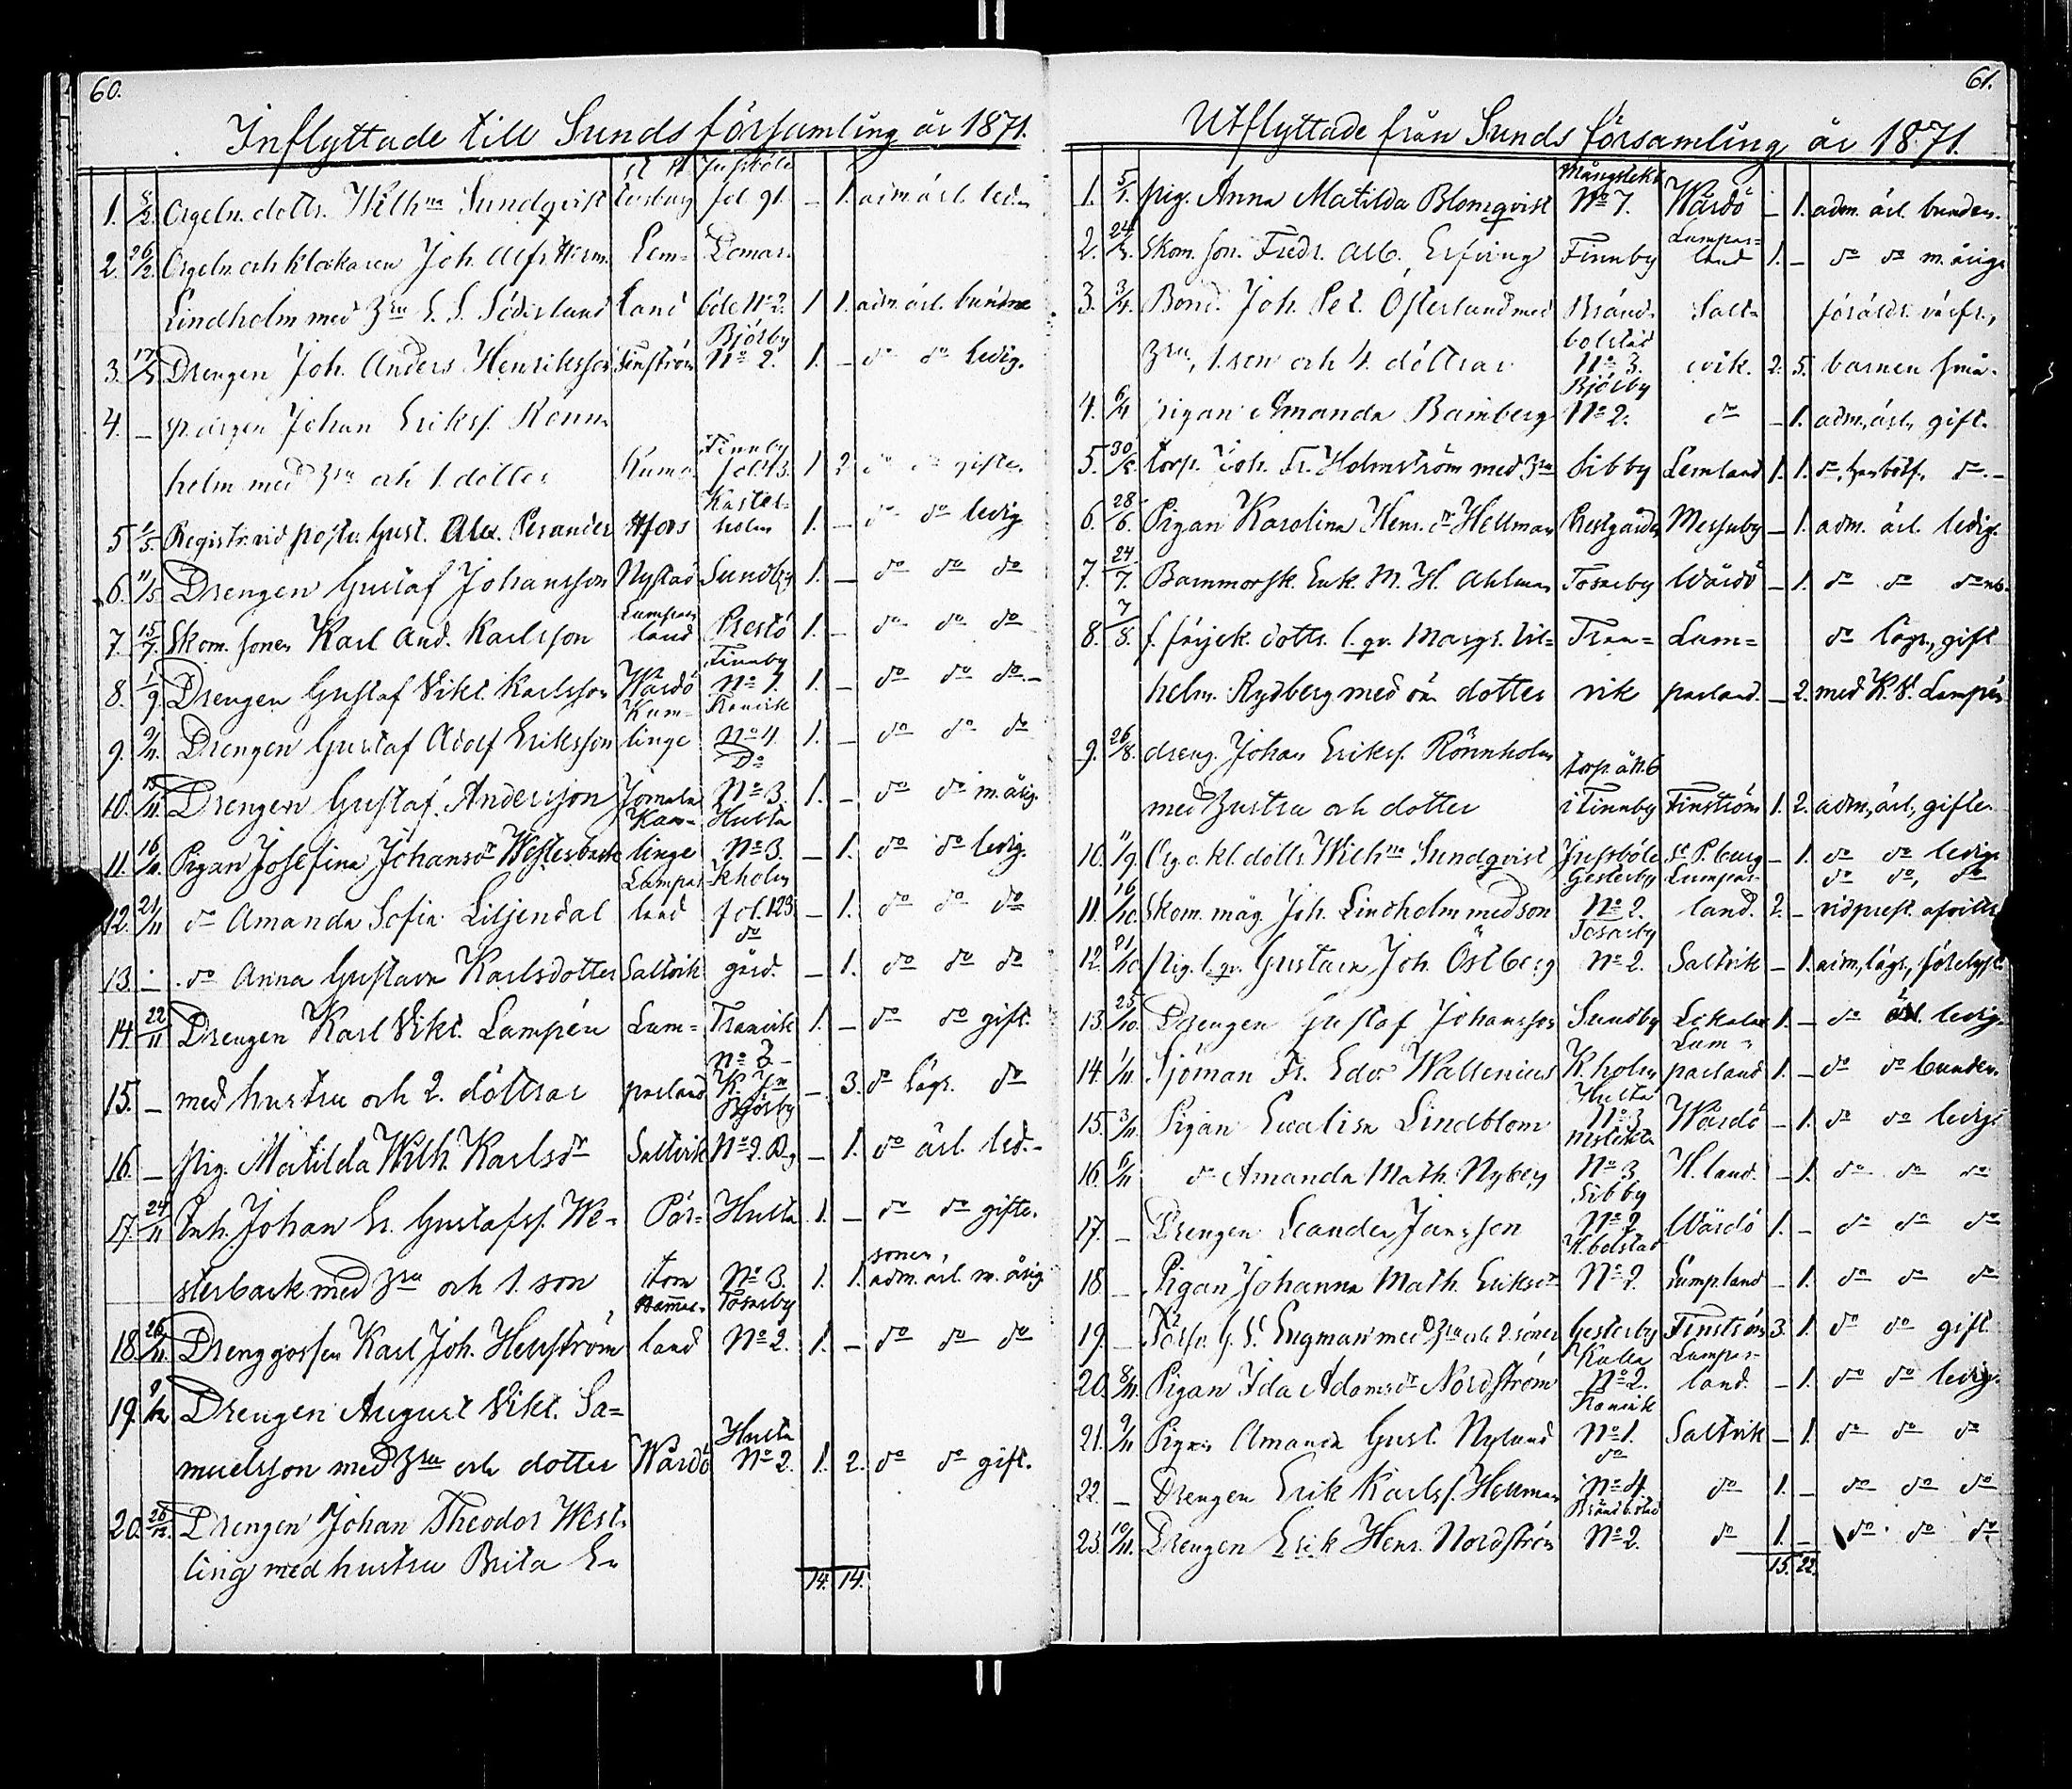 60.
Inflyttade till Sunds församling år 1871.
1. 5/2. Orgeln. dottr. Wilhna Sundqvist St P. tersburg Jussböle fol 91. – 1. adm. ärl. led.
2. 26/2. Orgeln. och klockaren Joh. Alfr. Herm. Lem- Domar-
Lindholm med Hru E. S. Söderlund land böle No 2. 1 1. adm. ärl. bundne
3. 17/3 Drengen Joh. Anders Henriksson Finström Björby No 2. 1. – do do ledig.
4. – Johan Erikss. Rönn-
holm med Hru och 1. dotter Kumo. Finnby fol. 43. 1 2 do do gifte.
5 1/5. Registr. vid post. Gust. Alex. Pesander Hfors Kastelholm 1. – do do ledig
6. 11/5 Drengen Gustaf Johansson Nystad Sundby 1. – do do do
7 15/7. Skom. sonen Karl And. Karlsson Lumparland Prestö 1. – do do do
8. 1/9 Drengen Gustaf Vikt. Karlsson Wårdö Finnby No 1. 1. – do do do –
9. 9/11. Drengen Gustaf Adolf Eriksson Kumlinge Tranvik No 4. 1. – do do do
10. 15/11 Drengen Gustaf. Andersson Jomala Do No 3. 1. – do do m. årig.
11. 16/11. Pigan Josefina Johansdr Westerback Kumlinge Hulta No 3. – 1. do do ledig.
12. 21/11 do Amanda Sofia Liljendal Lumparland Kholm fol. 123 – 1. do do do
13 – do Anna Gustava Karlsdotter Saltvik do gård. – 1. do do do
14. 22/11 Drengen Karl Vikt. Lampén Lum= Tranvik 1. – do do gift.
15. – med hustru och 2. döttrar parland No 3 – – 3. do lägr. do
16. – Pig. Matilda Wilh. Karlsdr Saltvik Björby No 2. – 1. do ärl. led. –
17. 24/11 Inh. Johan Er. Gustafss. We- Pär- Hulta 1. – do do gifte.
sterback med Hru och 1. son tom No 3. 1. 1. sonen, adm. ärl. m. årig
18. 26/11. Drenggossen Karl Joh. Hellström Hammarland Tosarby No 2. 1. – do do do
19. 9/12 Drengen August Vikt. Sa=
muelsson med Hru och dotter Wårdö Hulta No 2. 1. 2. do do gift.
20. 26/12. Drengen Johan Theodor West-
ling med hustru Brita E
14. 14.
61.
Utflyttade från Sunds församling år 1871.
1. 5/1. pig. Anna Matilda Blomqvist Mångstekt No 7. Wårdö – 1. adm. ärl. bunden.
2. 24/3. Skom. son. Fredr. Alb. Erfving Finnby Lumparland 1. – do do m. årig
3. 3/4. Bond. Joh. Pet. Österlund med Bränd- Salt- föräldr. välfr.,
Hru, 1. son och 4. döttrar bolstad No 3. vik. 2. 5. barnen små.
4. 6/4 pigan Amanda Bamberg Björby No 2. do – 1. adm., ärl., gift.
5. 30/5. torp. Joh. Fr. Holmström med Hru Sibby Lemland 1. 1. do, do –
6. 28/6. Pigan Karolina Henr. dr Hellman Prestgården Messuby – 1. adm. ärl. ledig.
7. 24/7. Barnmorsk. Enk. M. H. Ahlman Tosarby Wårdö – 1. do do do
8. 7/8. f. färjek. dottr. l. qv. Margr. Vil= Tran= Lum= do lägr., gift
helm. Rydberg med dotter vik parland. – 2. med K. V. Lampén
9. 26/8. dreng. Johan Erikss. Rönnholm torp. å No 6
med hustru och dotter i Finnby Finström 1. 2. adm., ärl., gifte.
10. 11/9. Org. o. kl. dottr. Wilhna Sundqvist Jussböle St P.burg – 1. do do ledig
11. 16/10. Skom. måg. Joh. Lindholm med son Gesterby No 2. Lumparland. 2. – do do, do
12. 21/10 Pig. l. qv. Gustava Joh. Östberg Tosarby No 2. Saltvik – 1. adm., lägr.,
13. 25/10. Drengen Gustaf Johansson Sundby Lokalax 1. – do ärl. ledig.
14. 1/11. Sjöman Fr. Edv. Wallenius K.holm Lumparland 1. – do do bunden
15. 3/11. Pigan Evalisa Lindblom Hulta No 3 Wårdö – 1. do do ledig
16. 6/11 do Amanda Math. Nyberg No 3 H.land. – 1. do do do
17. – Drengen Leander Jansson Sibby No 2 Wårdö 1. – do do do
18 – Pigan Johanna Math. Eriksdr No 2. Lump.land – 1. do do do
19. – G. V. Engman med Hru och 2. söner Gesterby Finström 3. 1. do do gift
20. 8/11. Pigan Ida Adamsdr Nordström Kulla No 2. Lumparland. – 1. do do ledig.
21. 9/11 Pigan Amanda Gust. Nylund Tranvik No 1. Saltvik – 1. do do do
22. – Drengen Erik Karlss. Hellman do No 4. do 1. – do do do
23. 10/11. Drengen Erik Henr. Nordström Brändbolstad No 2. do 1. – do do do
15. 22.